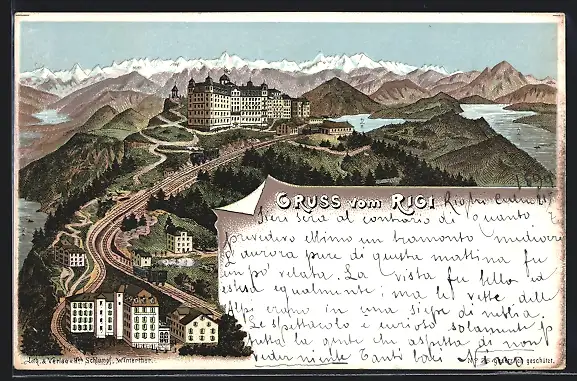 GRUSS VOM RIGI
Rigi
Ieri sera al contrario di quanto
prevedevo ebbimo un tramonto mediocre
L'aurora pure di questa mattina fu
un po' velata. La vista fu bella ed
estesa egualmente; ma le vette delle
erano in una siepe di nebbia.
Lo spettacolo è curioso solamente p
tutta la gente che aspetta di non
veder niente Tanti baci
Lith. & Verlag v. Hch Schlumpf, Winterthur.
geschützt.